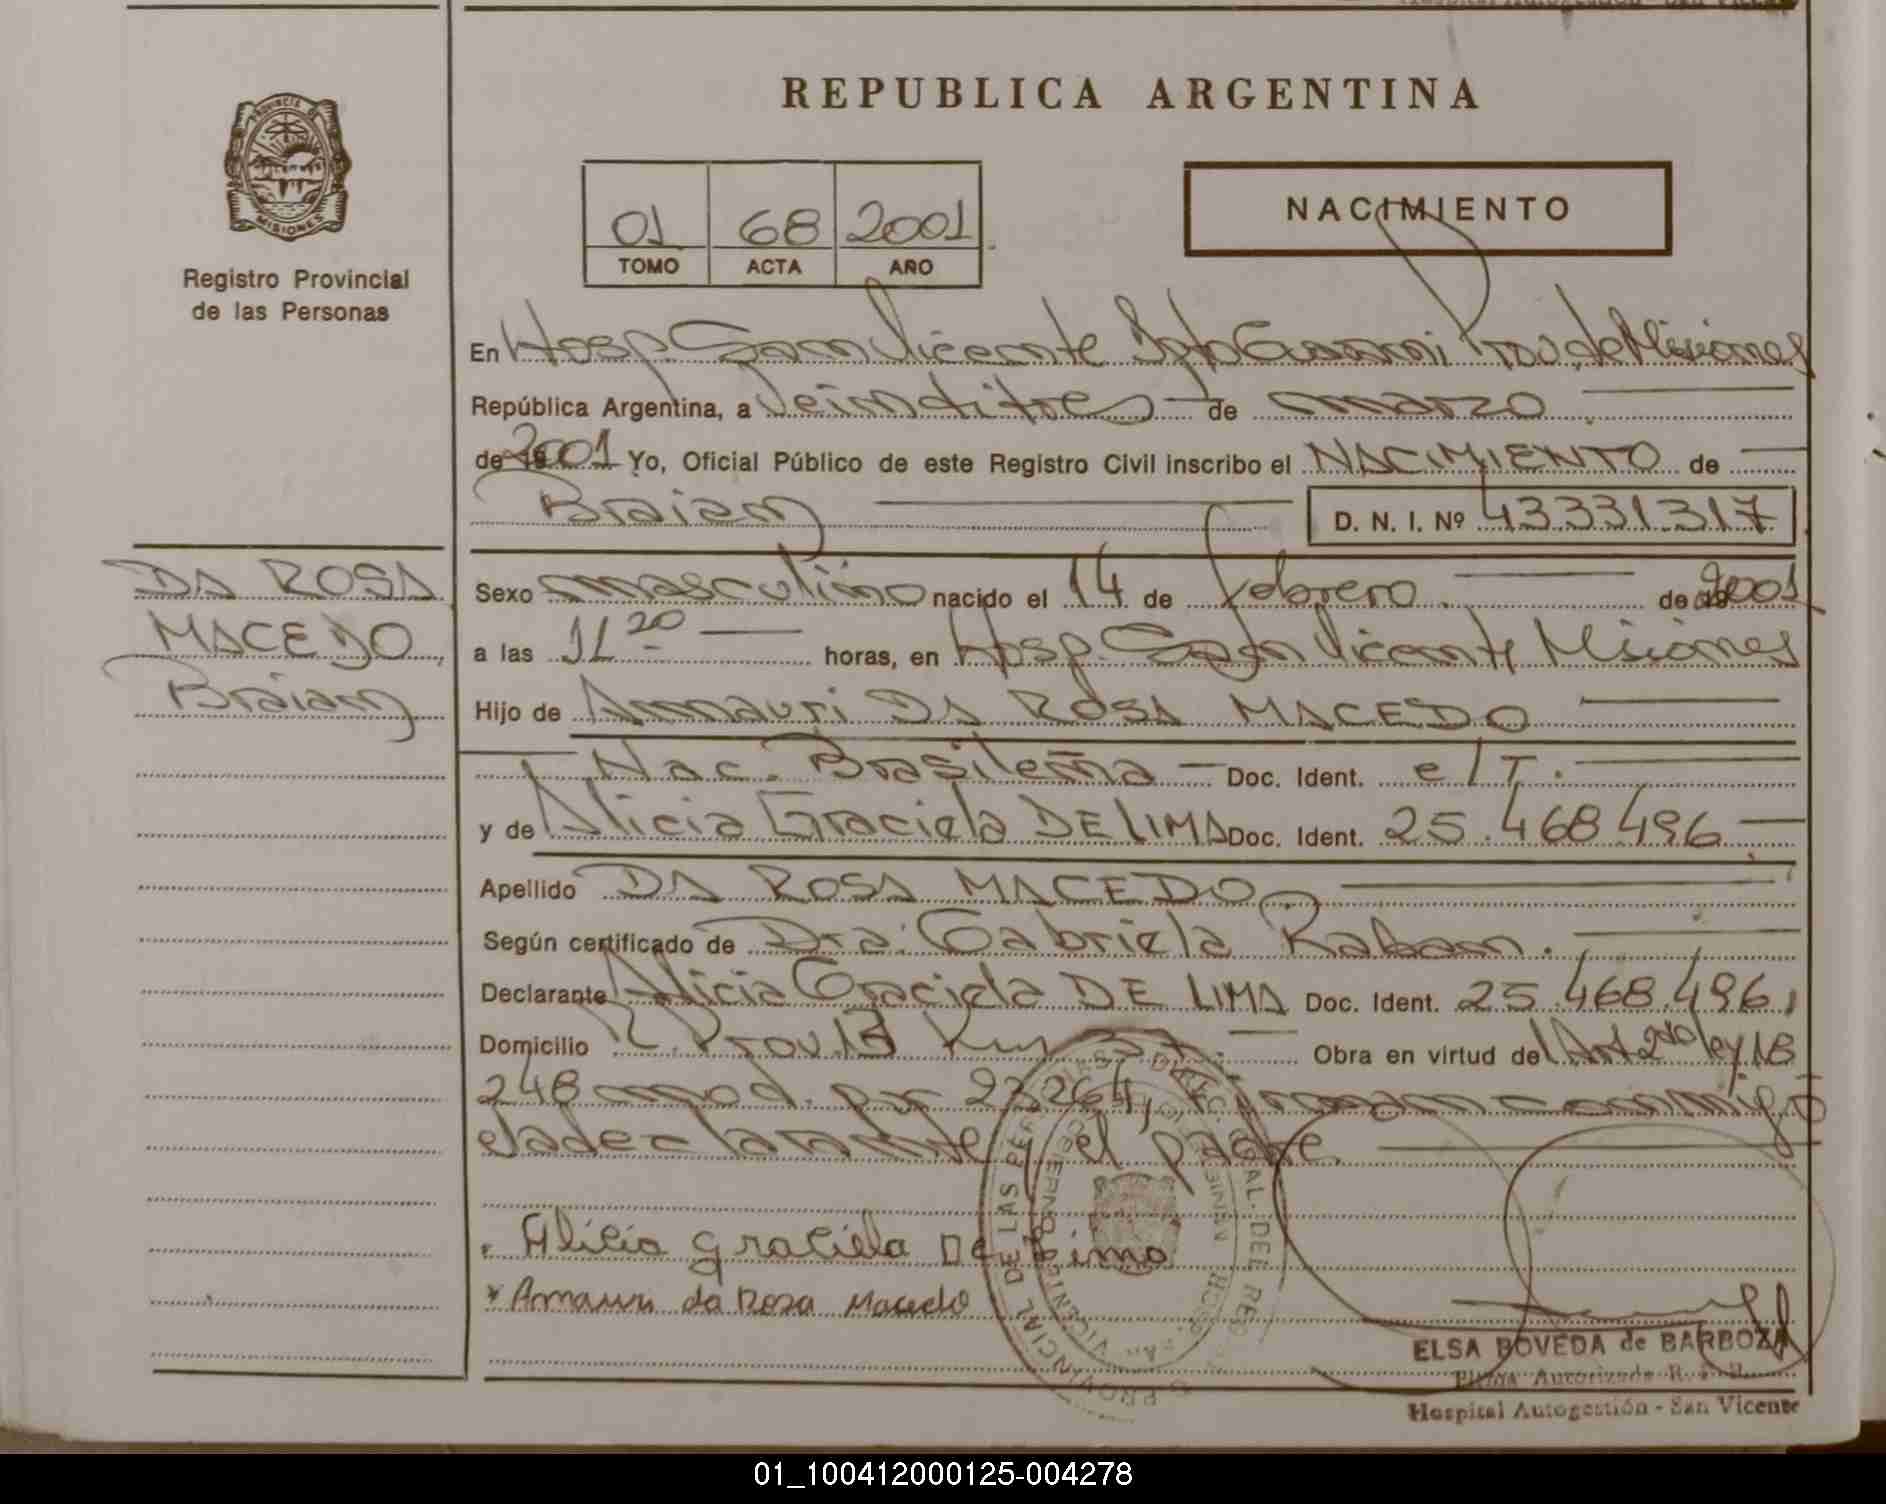 REPUBLICA ARGENTINA
PROVINCIA DE MISIONES
Registro Provincial
de las Personas
01 68 2001
TOMO ACTA AÑO
NACIMIENTO
En Hosp. San Vicente Dpto Guaraní Prov. de Misiones
República Argentina, a veintitres de marzo
de 2001 Yo, Oficial Público de este Registro Civil inscribo el NACIMIENTO de
Braian D. N. I. Nº 43331317
DA ROSA
MACEDO
Braian
Sexo masculino nacido el 14 de febrero de 2001
a las 11 20 horas, en Hosp. San Vicente Misiones
Hijo de Amauri DA ROSA MACEDO
Nac. Brasileña Doc. Ident. e/T.
y de Alicia Graciela DE LIMA Doc. Ident. 25.468.496
Apellido DA ROSA MACEDO
Según certificado de Dra. Gabriela
Declarante Alicia Graciela DE LIMA Doc. Ident. 25.468.496,
Domicilio R. Prov. 13 Km 37. Obra en virtud del Art 2do ley 18
248 mod. por 23264, firman conmigo
la declarante y el padre.
Alicia graciela De Lima
* Amauri da Rosa Macedo
ELSA BOVEDA de BARBOZA
Firma Autorizada R. P. P.
Hospital Autogestión - San Vicente
01_100412000125-004278